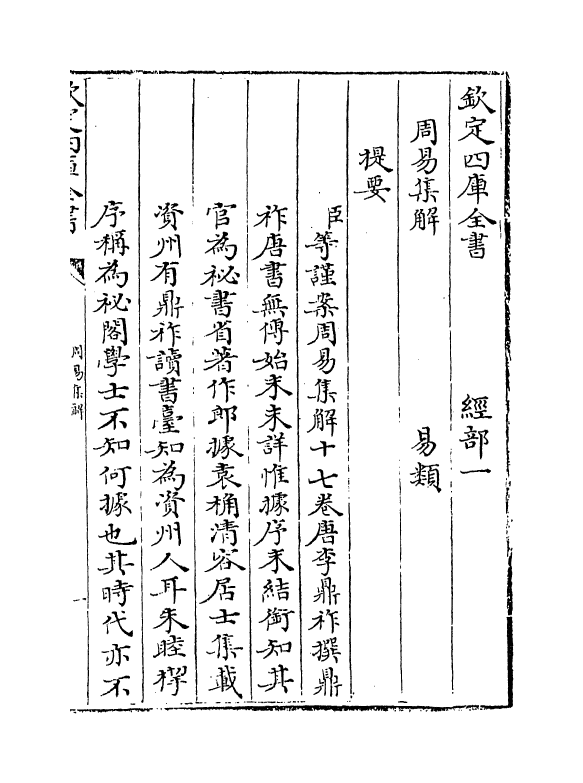 欽定四庫全書　經部一
周易集解　易類
提要
臣等謹案周易集解十七卷唐李鼎祚撰鼎
祚唐書無傳始末未詳惟據序末結銜知其
官為祕書省著作郎據袁桷清容居士集載
資州有鼎祚讀書臺知為資州人耳朱睦㮮
序稱為祕閣學士不知何據也其時代亦不
欽定四庫全書
周易集解
一